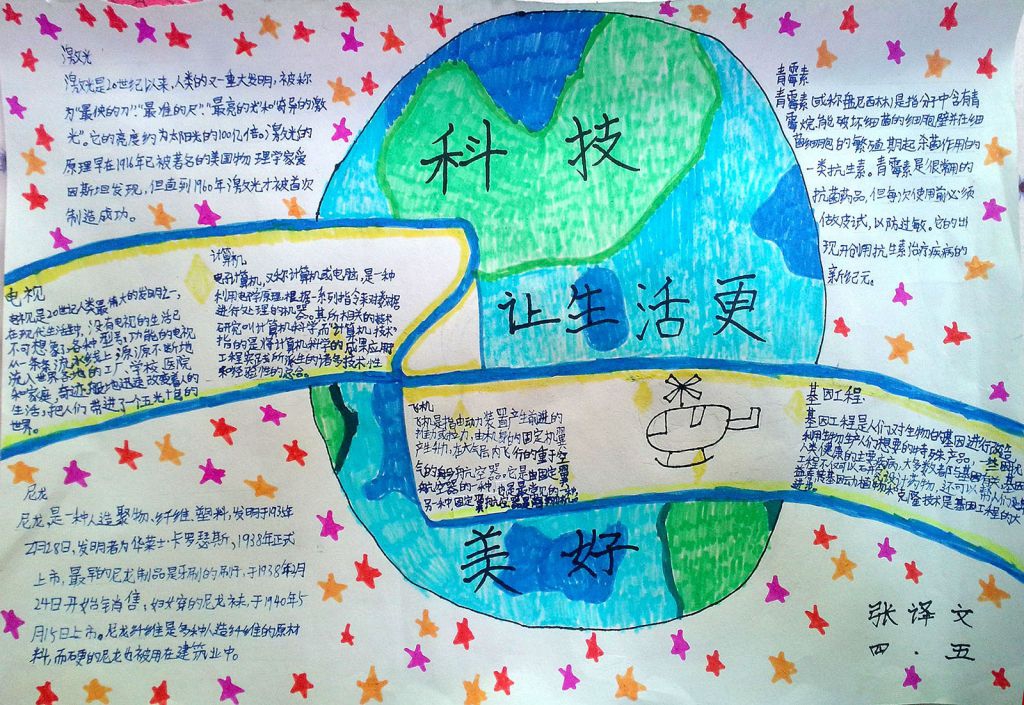 科技
让生活更
美好
激光
激光是20世纪以来,人类的又一重大发明,被称
为“最快的刀”“最准的尺”“最亮的光”和“奇异的激
光”。它的亮度约为太阳光的100亿倍。激光的
原理早在1916年已被著名的美国物理学家爱
因斯坦发现,但直到1960年激光才被首次
制造成功。
青霉素
青霉素(或称盘尼西林)是指分子中含有青
霉烷,能破坏细菌的细胞壁并在细
菌细胞的繁殖期起杀菌作用的
一类抗生素。青霉素是很常用的
抗菌药品,但每次使用前必须
做皮试,以防过敏。它的出
现开创用抗生素治疗疾病的
新纪元。
电视
电视是20世纪人类最伟大的发明之一,
在现代生活中,没有电视的生活已
不可想象了。各种型号,功能的电视
从一条条流水线上源源不断地
流入世界各地的工厂、学校、医院
和家庭,
迅速改变着人的
生活,把人们带进了一个五光十色的
世界。
计算机
电子计算机,又称计算机或电脑,是一种
利用电子学原理根据一系列指令来对数据
进行处理的机器。其所相关的技术
研究叫计算机科学,而“计算机技术”
指的是将计算机科学的成果应用
工程实践所派生的诸多技术性
和经验性的总合。
飞机
飞机是指由动力装置产生前进的
推力或拉力,由机身的固定机翼
产生升力,在大气层内飞行的重于空
气的航空器。它是固定翼
航空器的一种,也是最常见的一种,
另一种固定翼
基因工程:
基因工程是人们对生物的基因进行改造,
利用生物生产人们想要的特殊产品,
人类健康的主要疾病,大多数者
工程不仅可以
克隆技术是基因工程的大
尼龙
尼龙,是一种人造聚物、纤维、塑料,发明于1935年
2月28日,发明者为华莱士·卡罗瑟斯,1938年正式
上市,最早的尼龙制品是牙刷的刷子,于1938年2月
24日开始销售;妇女穿的尼龙袜,于1940年5
月15日上市。尼龙纤维是多种人造纤维的原材
料,而硬的尼龙也被用在建筑业中。
张译文
四.五